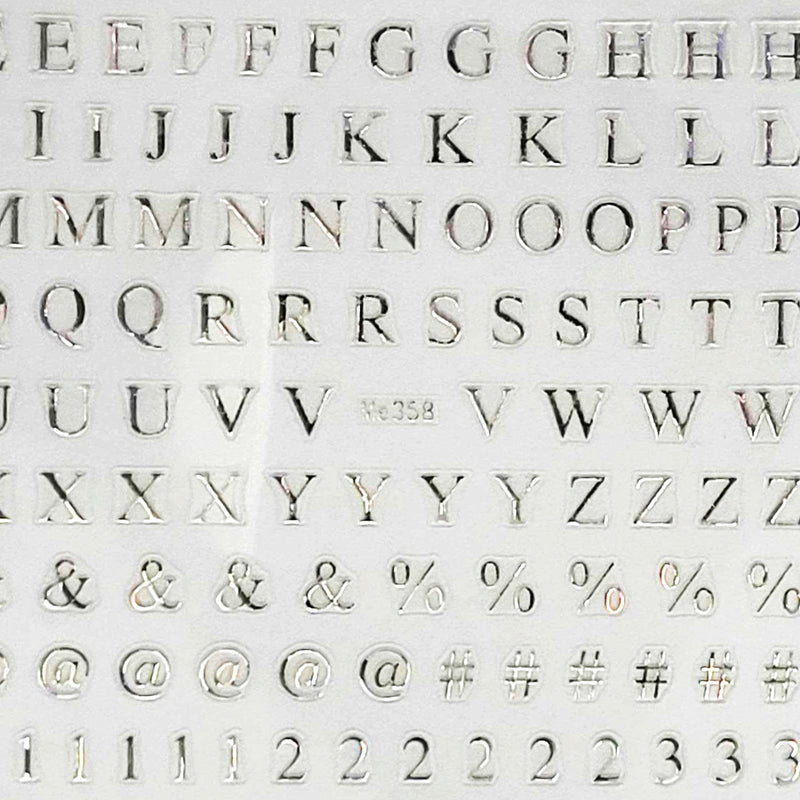 E E E F F F G G G H H H
I I J J J K K K L L L
M M M N N N O O O P P P
Q Q R R R S S S T T T
U U U V V Me358 V W W W
X X X X Y Y Y Y Z Z Z Z
& & & & % % % % %
@ @ @ @ @ # # # # # #
1 1 1 1 1 2 2 2 2 2 2 3 3 3